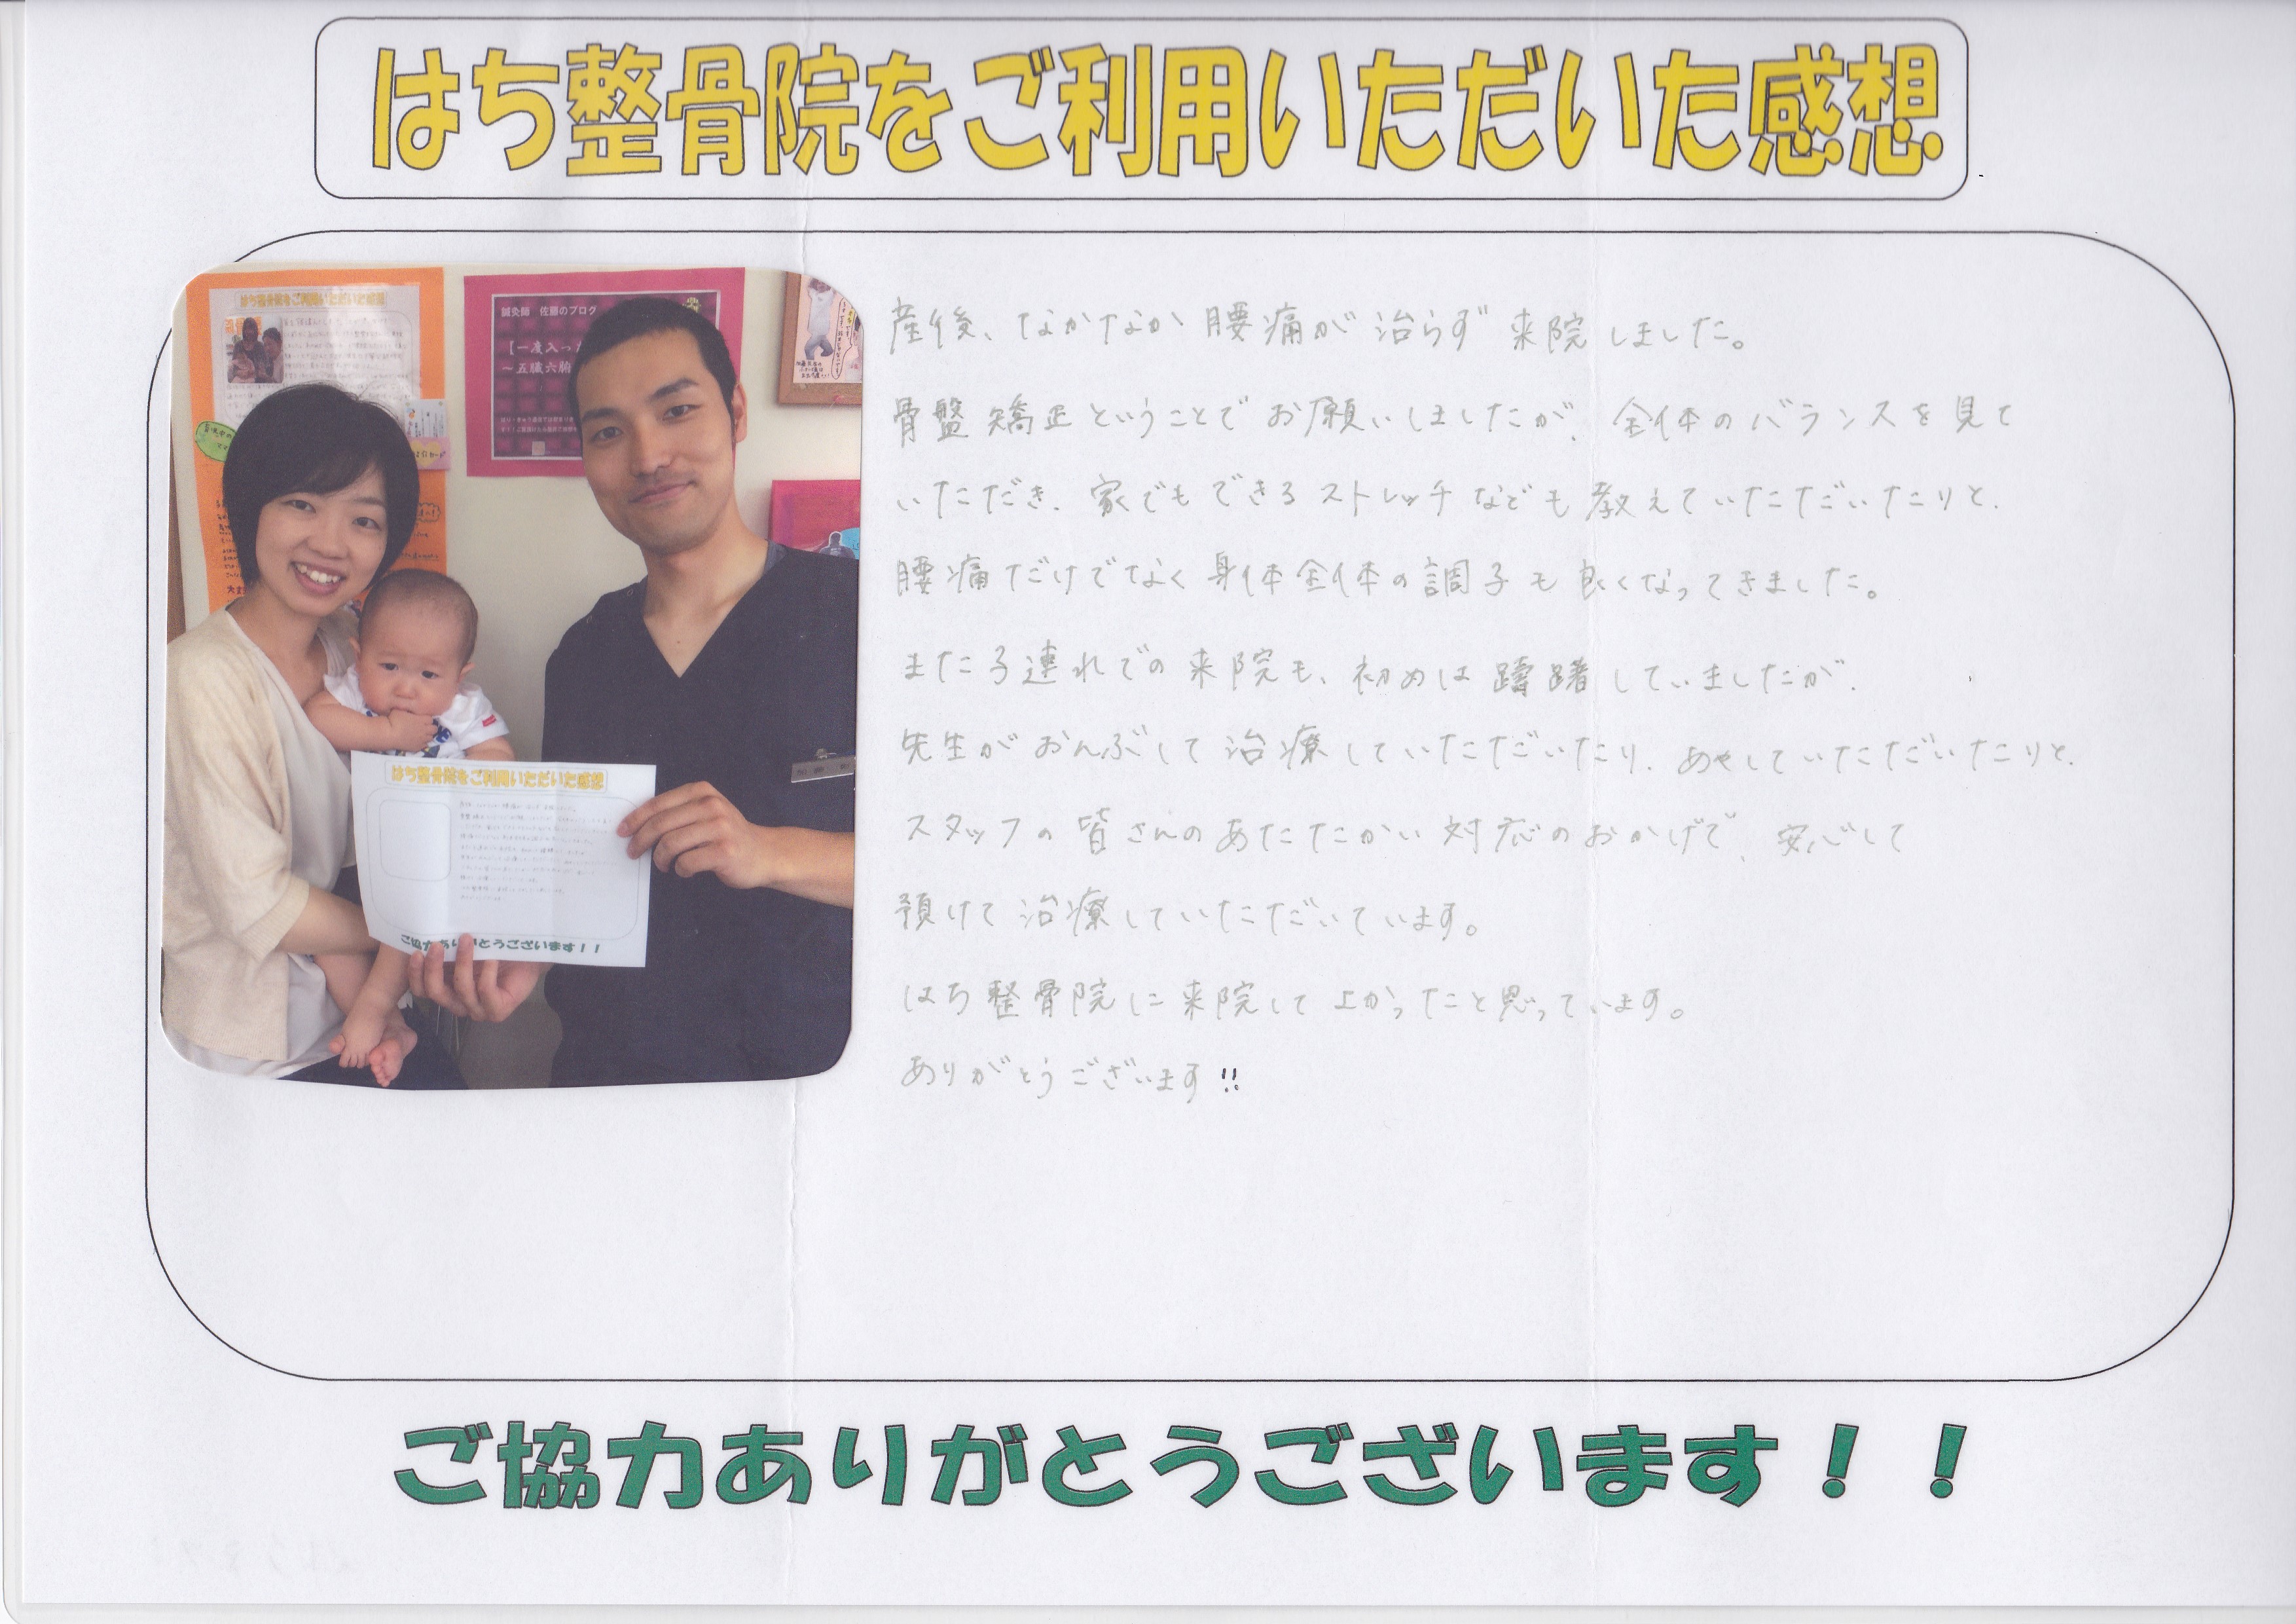 はち整骨院をご利用いただいた感想
産後、なかなか腰痛が治らず来院しました。
骨盤矯正ということでお願いしましたが、全体のバランスを見て
いただき、家でもできるストレッチなども教えていただいたりと、
腰痛だけでなく身体全体の調子も良くなってきました。
また子連れでの来院も、初めは躊躇していましたが、
先生がおんぶして治療していただいたり、あやしていただいたりと、
スタッフの皆さんのあたたかい対応のおかげで、安心して
預けて治療していただいています。
はち整骨院に来院して よかったと思っています。
ありがとうございます!!
はち整骨院をご利用いただいた感想
鍼灸師 佐藤のブログ
【一度入っ
～五臓六腑
はち整骨院をご利用いただいた感想
ご協力ありがとうございます！！
ご協力ありがとうございます！！